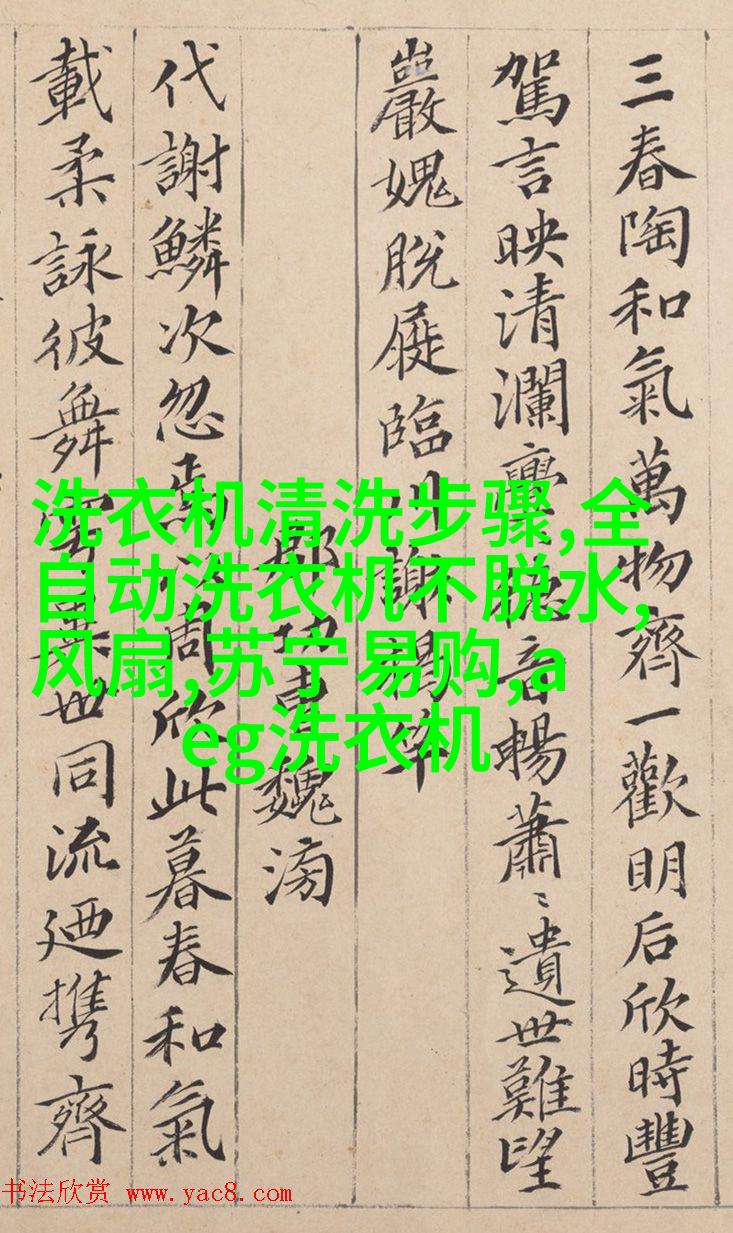 三春陶和氣萬物齊一歡明后欣時豐
駕言映清瀾亹〻德音暢蕭〻遺世難望
巖愧脫屣臨川謝揭竿
郡功曹魏滂
代謝鱗次忽焉以周欣此暮春和氣
載柔詠彼舞雩異世同流迺携齊
洗衣机清洗步骤,全
自动洗衣机不脱水,
风扇,苏宁易购,a
eg洗衣机
书法欣赏 www.yac8.com